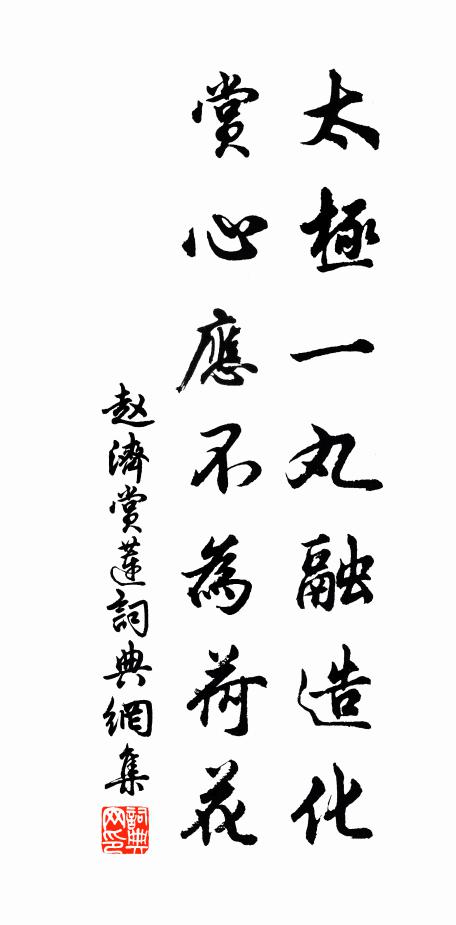 太極一丸融造化
賞心應不為荷花
赵濟賞蓮詞典網集
詞典网印